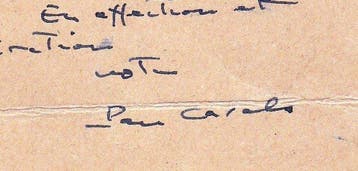 En affection et
ration
votre
Pau Casals